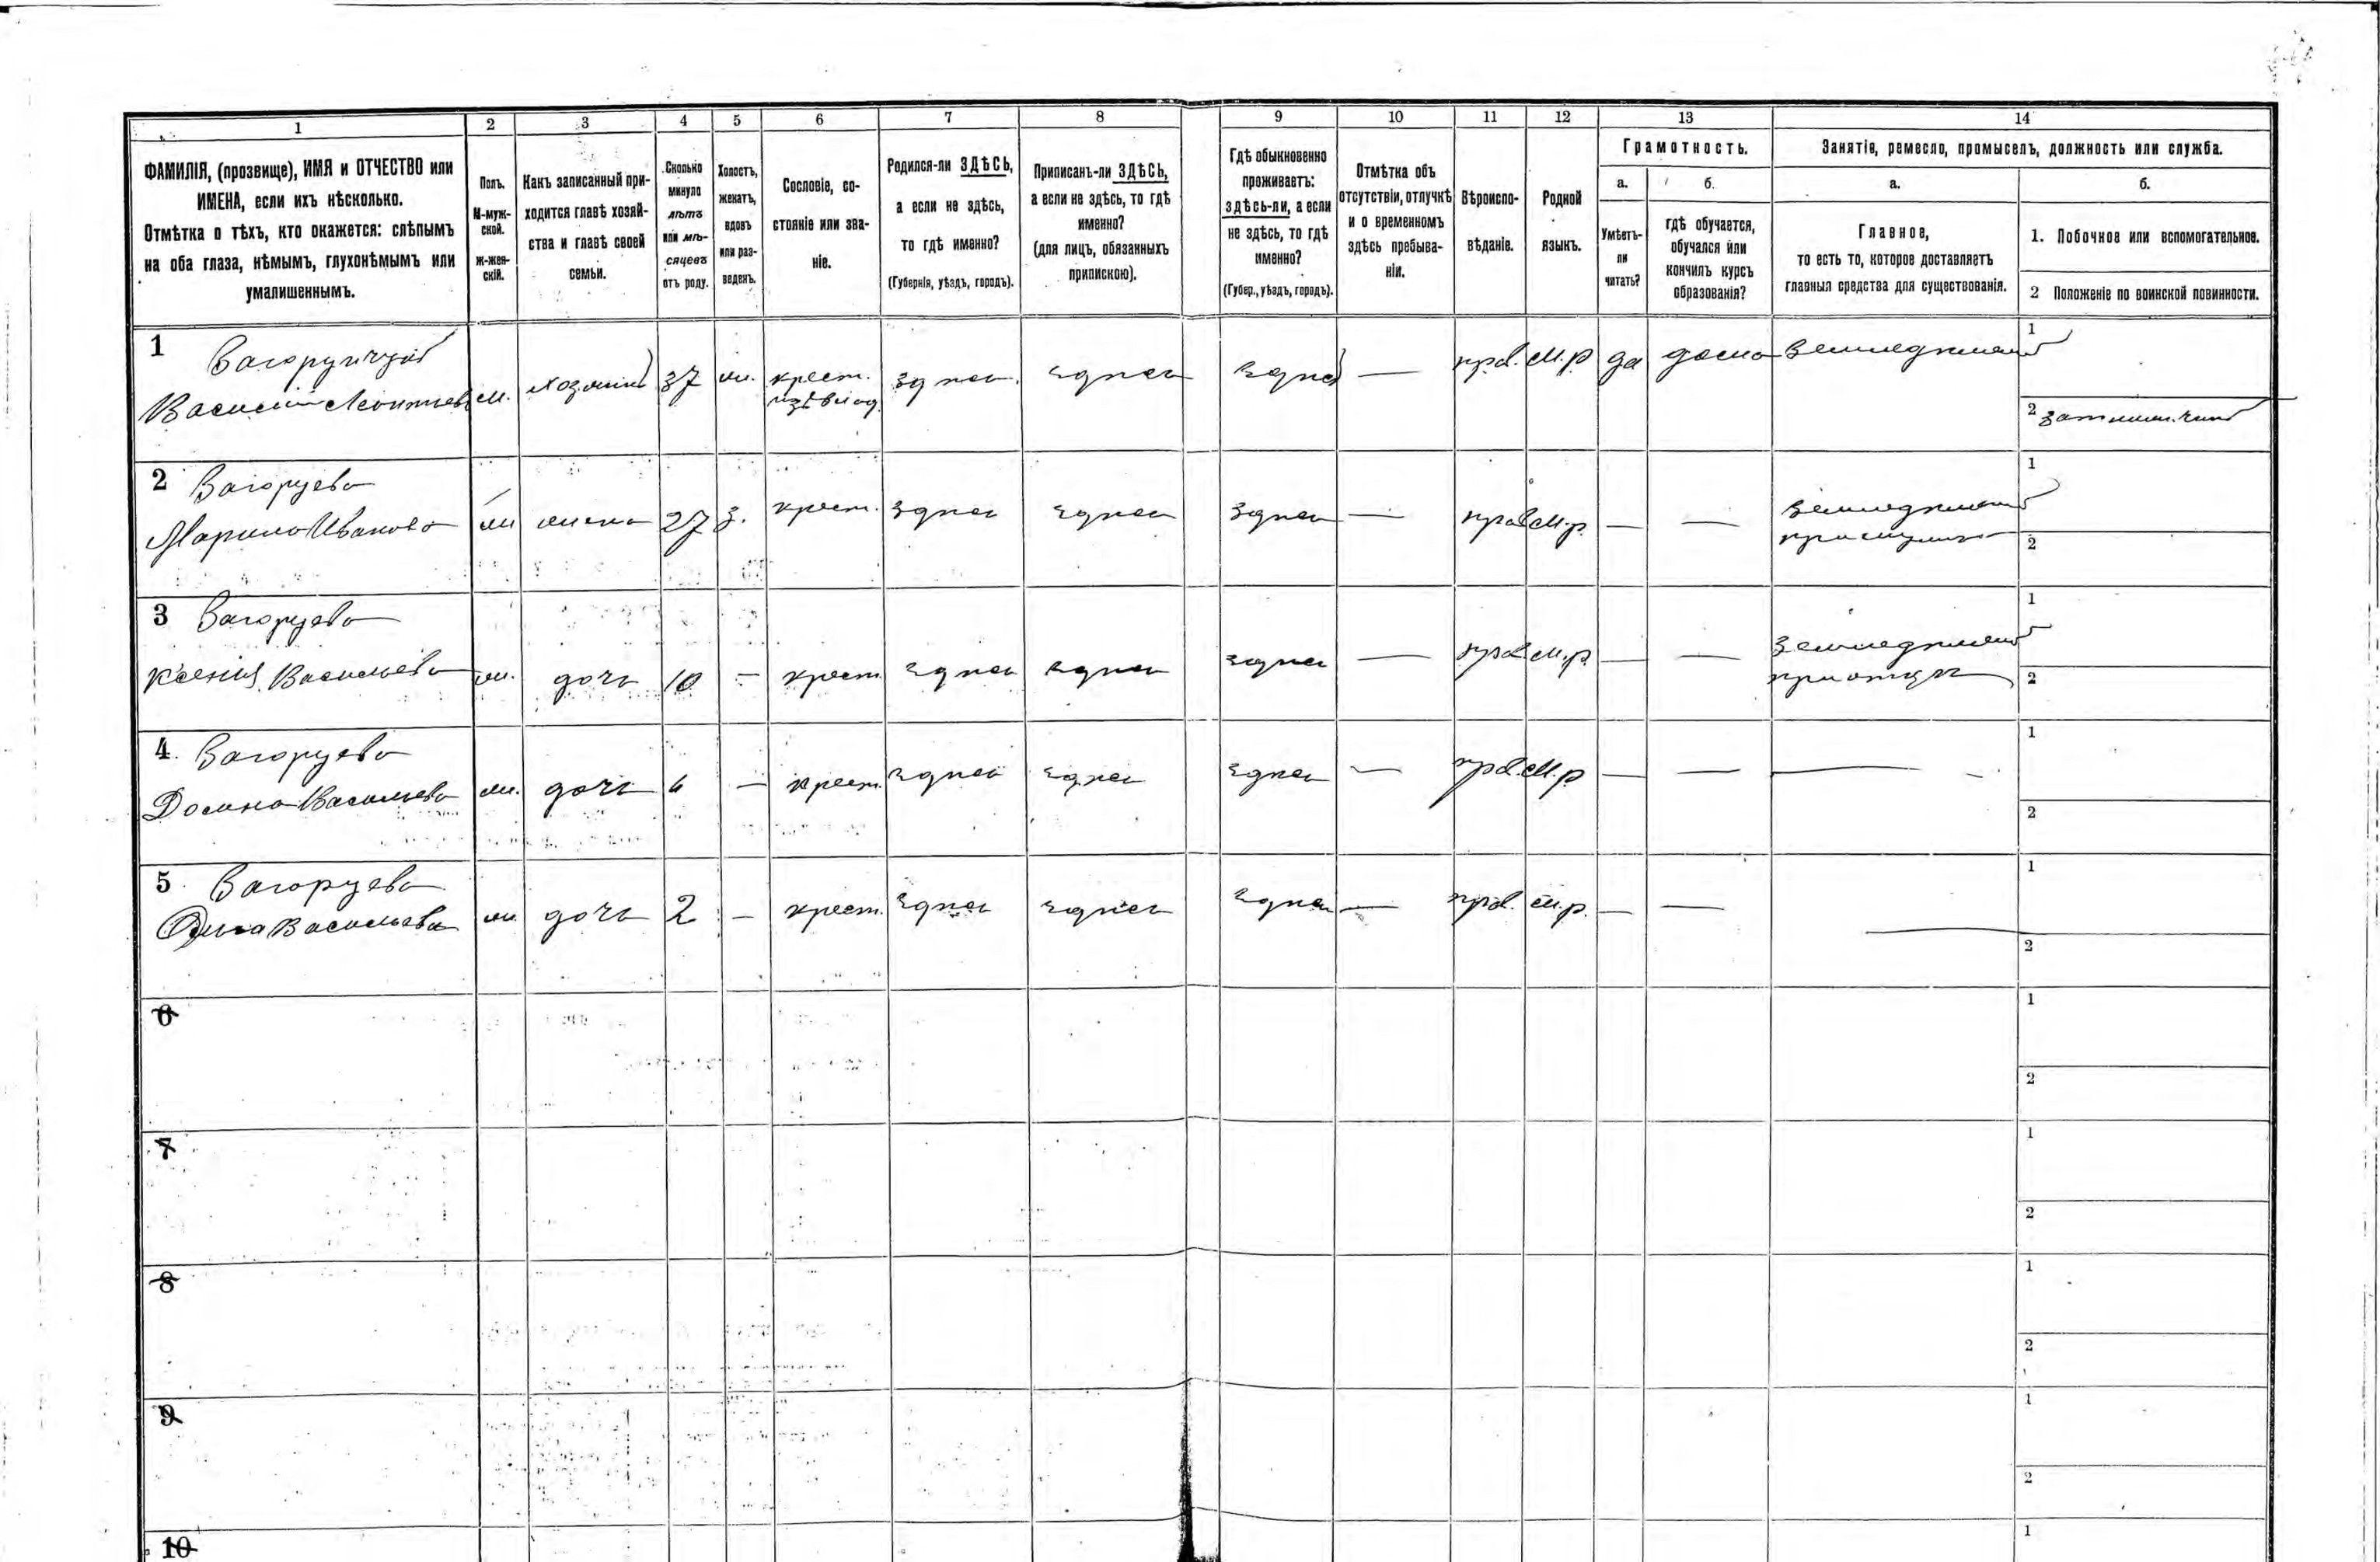 1 2 3 4 5 6 7 8 9 10 11 12 13 14
ФАМИЛІЯ, (прозвище), ИМЯ и ОТЧЕСТВО или
ИМЕНА, если ихъ нѣсколько.
Отмѣтка о тѣхъ, кто окажется: слѣпымъ
на оба глаза, нѣмымъ, глухонѣмымъ или
умалишеннымъ.
Полъ.
М-муж-
ской.
ж-жен-
скій.
Какъ записанный при-
ходится главѣ хозяй-
ства и главѣ своей
семьи.
Сколько
минуло
лѣтъ
или мѣ-
сяцевъ
отъ роду.
Холостъ,
женатъ,
вдовъ
или раз-
веденъ.
Сословіе, со-
стояніе или зва-
ніе.
Родился-ли ЗДѢСЬ,
а если не здѣсь,
то гдѣ именно?
(Губернія, уѣздъ, городъ).
Приписанъ-ли ЗДѢСЬ,
а если не здѣсь, то гдѣ
именно?
(для лицъ, обязанныхъ
припискою).
Гдѣ обыкновенно
проживаетъ:
здѣсь-ли, а если
не здѣсь, то гдѣ
именно?
(Губер., уѣздъ, городъ).
Отмѣтка объ
отсутствіи, отлучкѣ
и о временномъ
здѣсь пребыва-
ніи.
Вѣроиспо-
вѣданіе.
Родной
языкъ.
Грамотность.
а.
Умѣетъ-
ли
читать?
б.
гдѣ обучается,
обучался или
кончилъ курсъ
образованія?
Занятіе, ремесло, промыселъ, должность или служба.
а.
Главное,
то есть то, которое доставляетъ
главныя средства для существованія.
б.
1. Побочное или вспомогательное.
2 Положеніе по воинской повинности.
1
Василій Леонтьевъ м. хозяинъ 37 ж. крест. здѣсь здѣсь здѣсь — прав. м.р. да дома земледѣлецъ 1
2
2 Вагоруева
Марина Иванова ж жена 27 з. крест. здѣсь здѣсь здѣсь — прав м.р. — — земледѣлецъ 1
при мужѣ 2
3 Вагоруева
Ксенія Васильева ж. дочь 10 — крест здѣсь здѣсь здѣсь — прав м.р. — — земледѣлецъ 1
при отцѣ 2
4. Вагоруева
Васильева ж. дочь — крест. здѣсь здѣсь здѣсь — прав. м.р — — — 1
2
5 Вагоруева
Васильева ж. дочь 2 — крест. здѣсь здѣсь здѣсь — прав. м.р. — — — 1
2
6 1
2
7 1
2
8 1
2
9 1
2
10 1